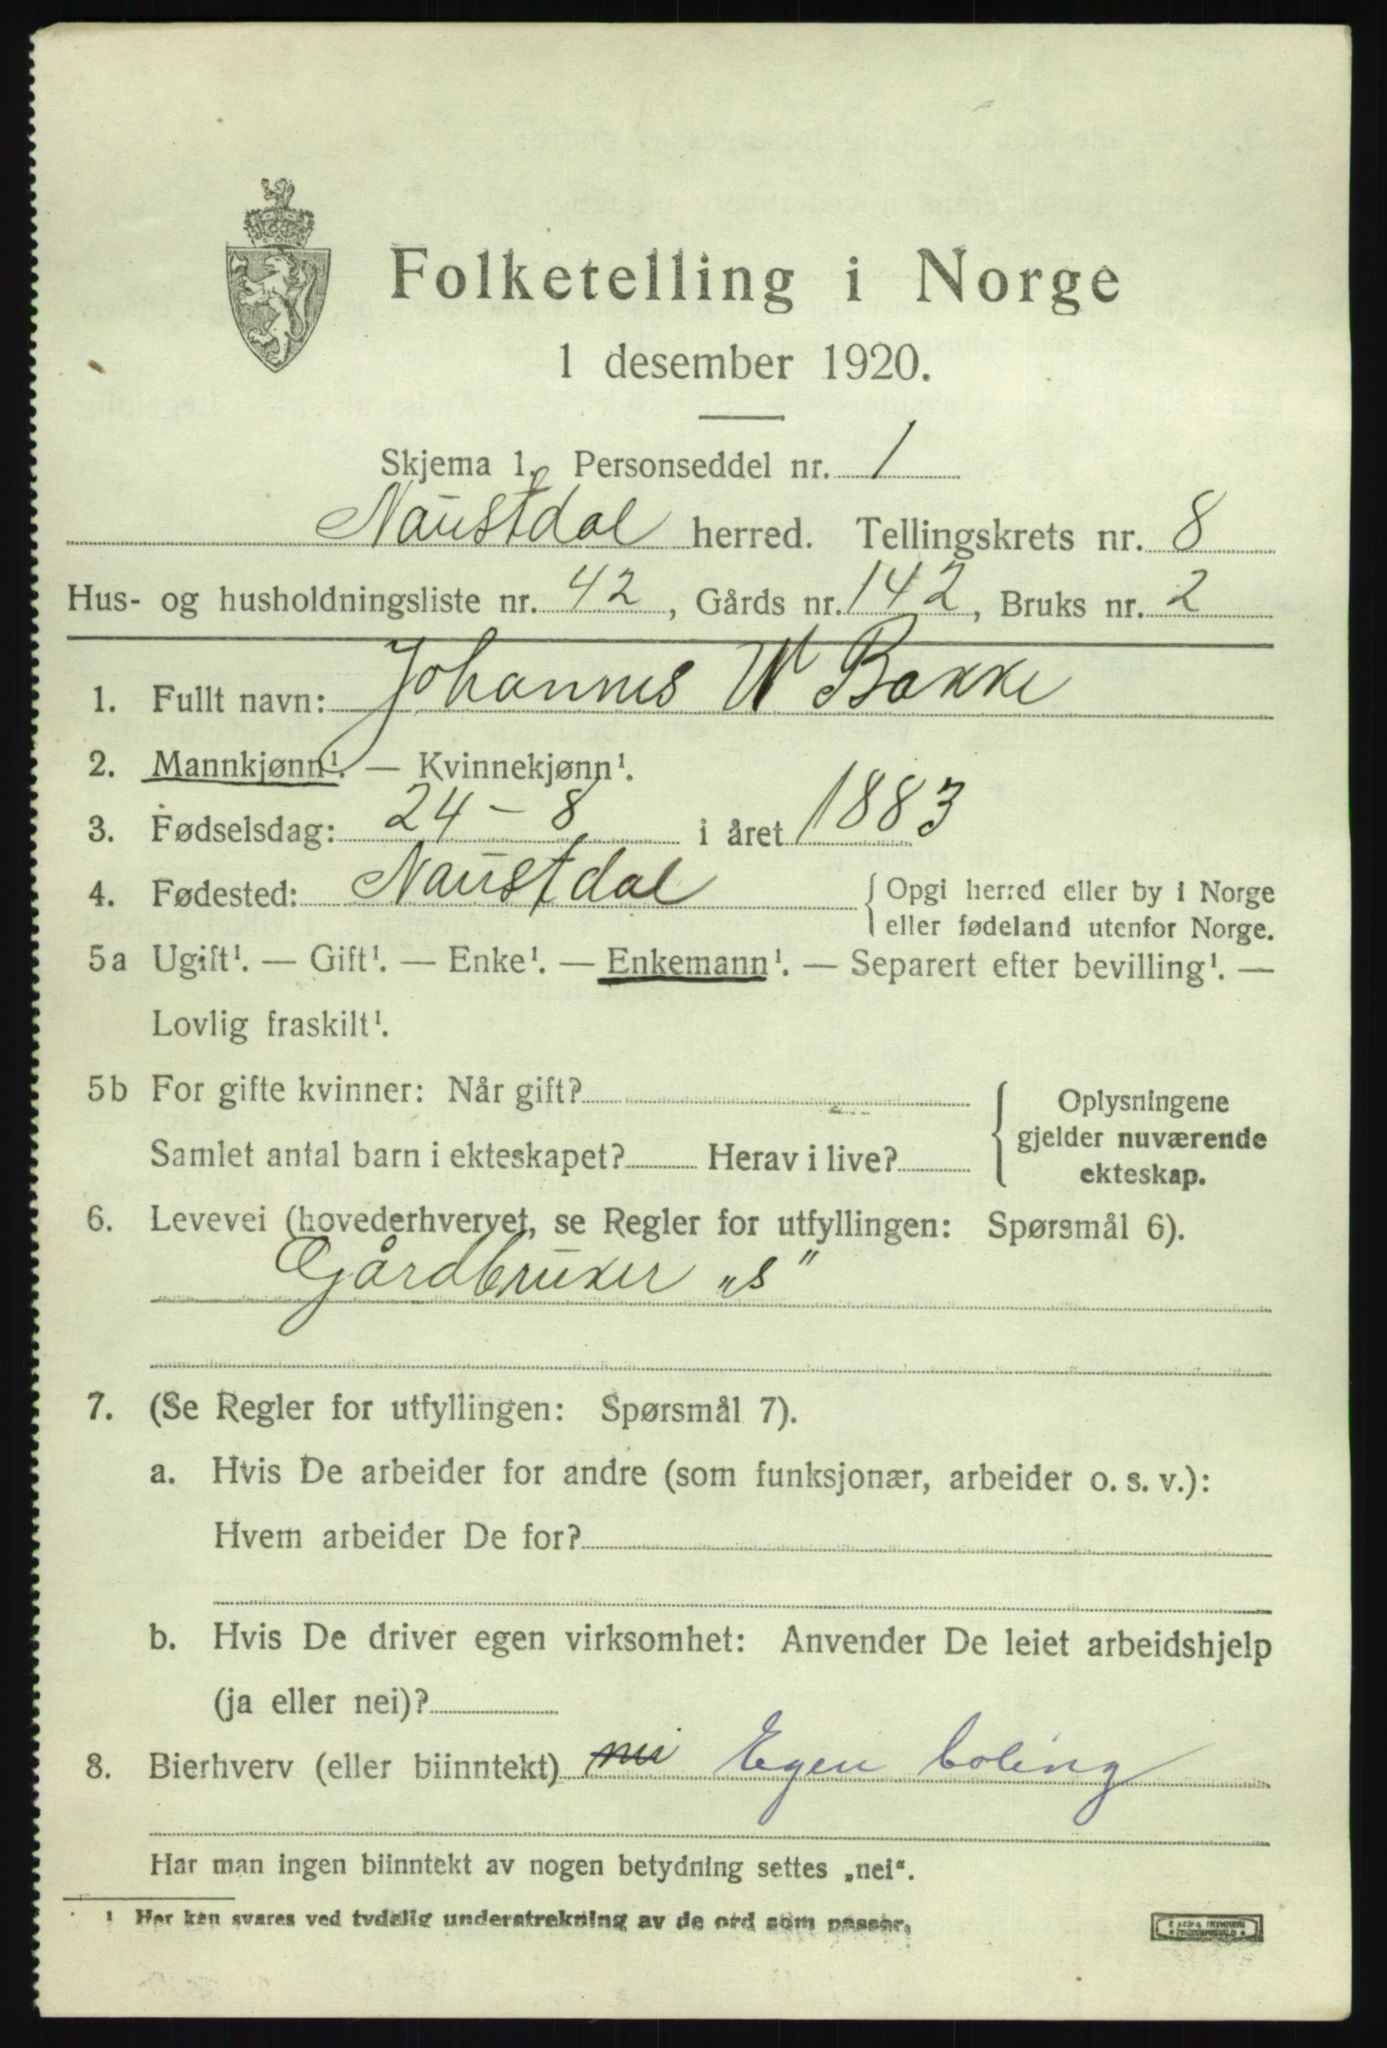 Folketelling i Norge
1 desember 1920.
Skjema 1. Personseddel nr. 1
Naustdal herred. Tellingskrets nr. 8
Hus- og husholdningsliste nr. 42, Gårds nr. 142, Bruks nr. 2
1. Fullt navn: Johannes W Bakke
2. Mannkjønn¹. — Kvinnekjønn¹.
3. Fødselsdag: 24 - 8 i året 1883
4. Fødested: Naustdal { Opgi herred eller by i Norge
eller fødeland utenfor Norge.
5a Ugift¹. — Gift¹. — Enke¹. — Enkemann¹. — Separert efter bevilling¹. —
Lovlig fraskilt¹.
5b For gifte kvinner: Når gift?
Samlet antal barn i ekteskapet? Herav i live?
Oplysningene
gjelder nuværende
ekteskap.
6. Levevei (hovederhvervet, se Regler for utfyllingen: Spørsmål 6).
Gårdbruker „s"
7. (Se Regler for utfyllingen: Spørsmål 7).
a. Hvis De arbeider for andre (som funksjonær, arbeider o. s. v.):
Hvem arbeider De for?
b. Hvis De driver egen virksomhet: Anvender De leiet arbeidshjelp
(ja eller nei)?
8. Bierhverv (eller biinntekt) nei Egen boling
Har man ingen biinntekt av nogen betydning settes „nei“.
¹ Her kan svares ved tydelig understrekning av de ord som passer.